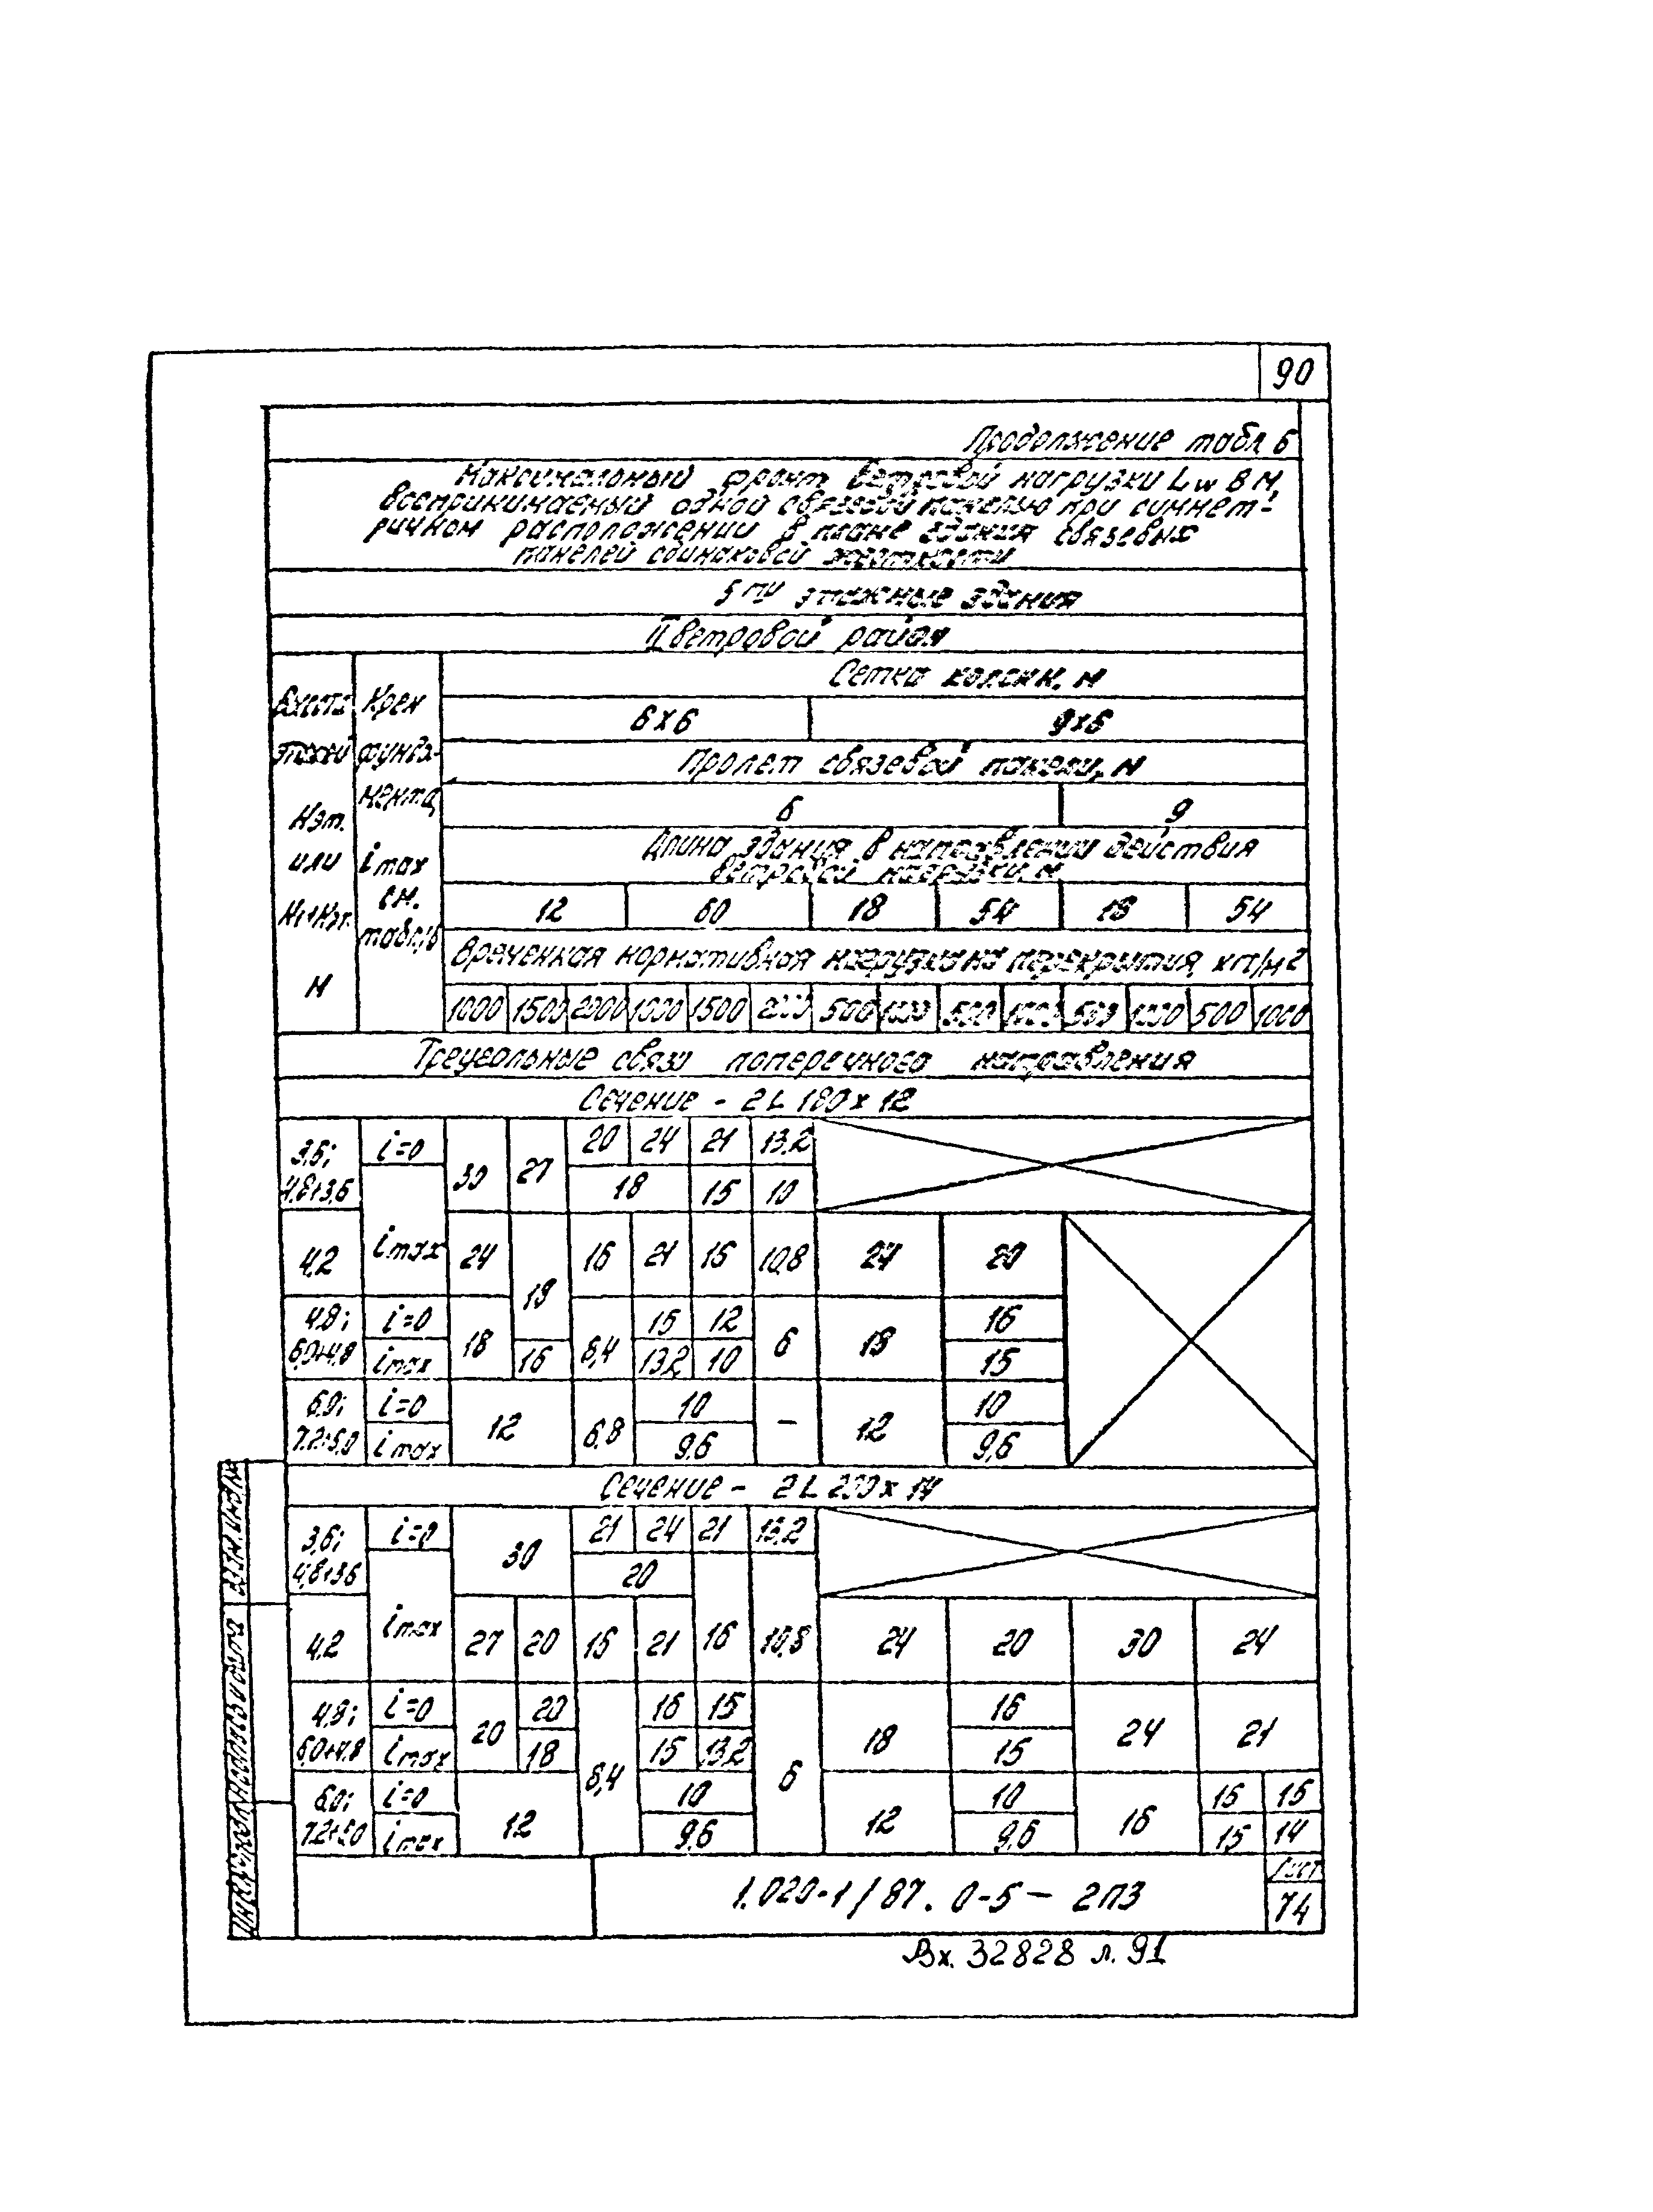 90
Продолжение табл 6
Максимальный фронт ветровой нагрузки Lw в м,
воспринимаемый одной связевой панелью при симмет-
ричном расположении в плане здания связевых
панелей одинаковой жесткости
5ти этажные здания
II ветровой район
Высота этажей Нэт. или Н1+Нэт. м
Крен фундамента, i max см. табл.
Сетка колонн, м
6х6 9х6
Пролет связевой панели, м
6 9
Длина здания в направлении действия
ветровой нагрузки, м
12 60 18 54 18 54
Временная нормативная нагрузка на перекрытия, кгс/м2
1000 1500 2000 1000 1500 2000 500 1000 500 1000 500 1000 500 1000
Треугольные связи поперечного направления
Сечение - 2L 180 х 12
3,6; i=0 30 27 20 24 21 13,2
4,8+3,6 18 15 10
4,2 i max 24 18 16 21 15 10,8 24 20
4,8; i=0 18 8,4 15 12 6 18 16
6,0+4,8 i max 16 13,2 10 15
6,0; i=0 12 6,8 10 - 12 10
7,2+6,0 i max 9,6 9,6
Сечение - 2L 200 х 14
3,6; i=0 30 21 24 21 13,2
4,8+3,6 20
4,2 i max 27 20 15 21 16 10,8 24 20 30 24
4,8; i=0 20 20 8,4 16 15 6 18 16 24 21
6,0+4,8 i max 18 15 13,2 15
6,0; i=0 12 10 12 10 16 16 15
7,2+6,0 i max 9,6 9,6 15 14
1.020-1/87. 0-5 - 2ПЗ
Лист
74
Вх. 32828 л. 91